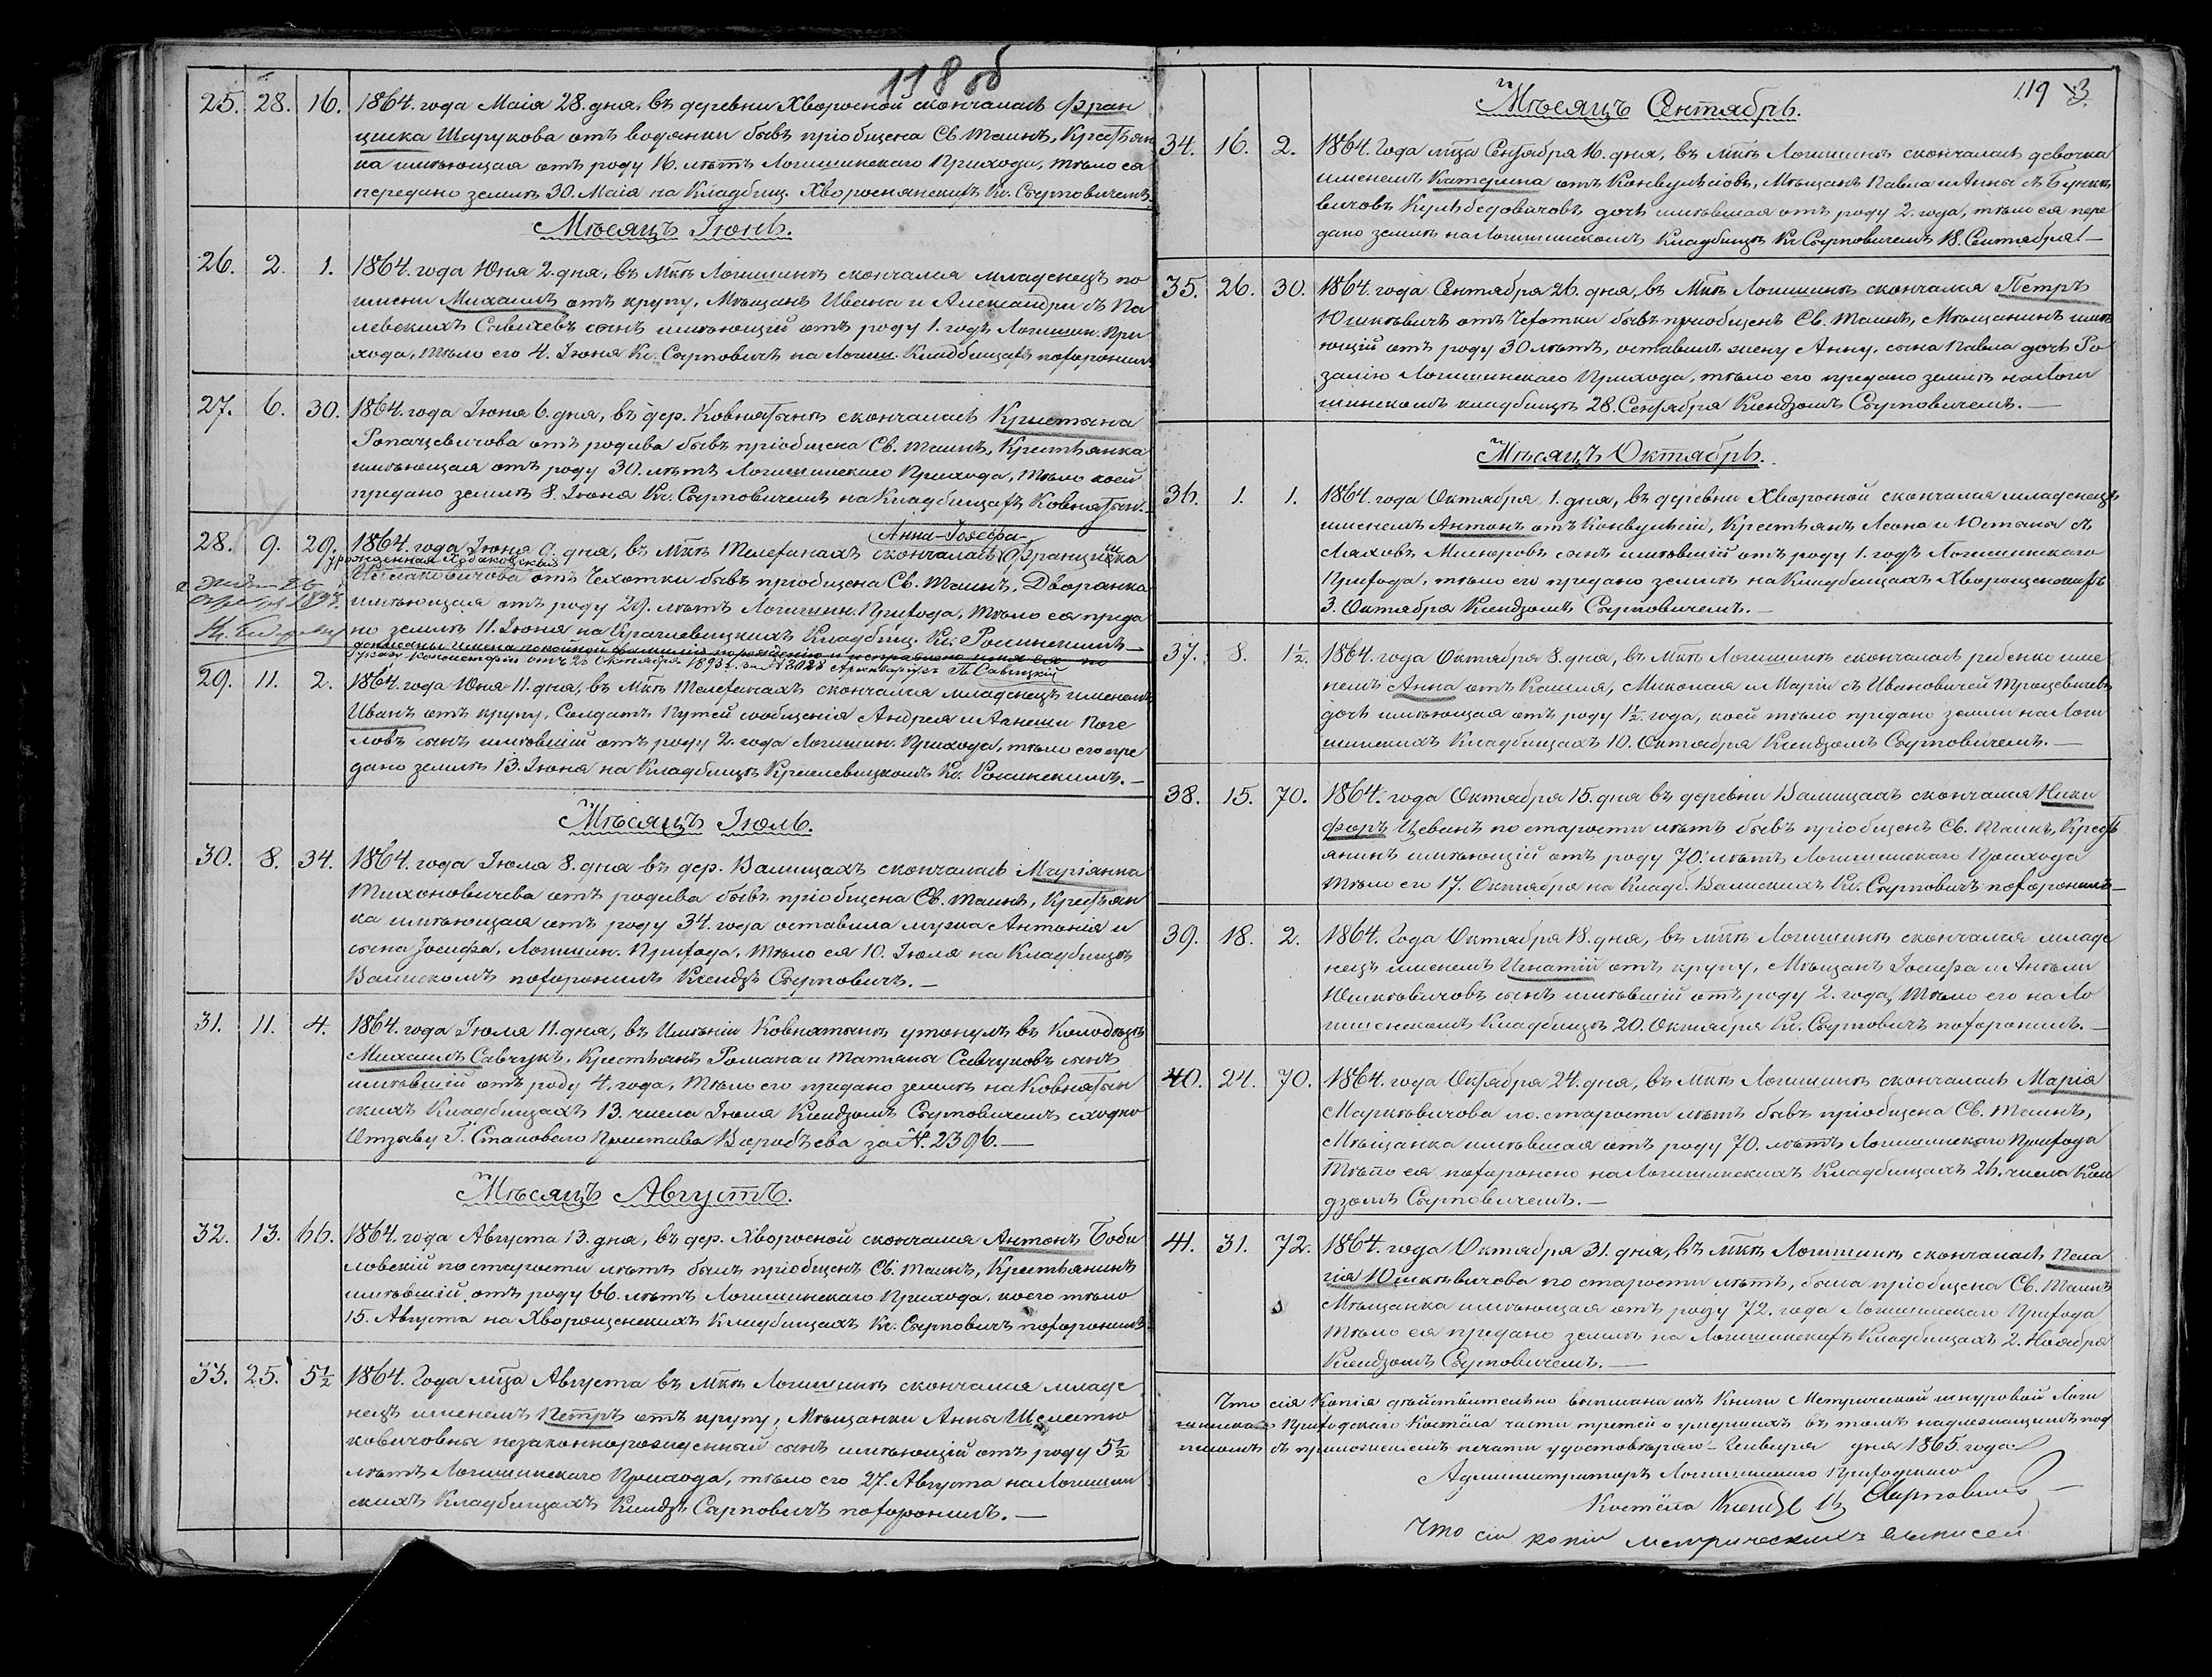 118 об
25. 28. 16. 1864. года Маія 28. дня, въ деревни Хворосной скончалась Фран
циска Шарукова отъ водянки бывъ пріобщена Св. Таинъ, Крестьян
ка имѣющая отъ роду 16. лѣтъ Логишинскаго Прихода, тѣло ея
передано землѣ 30. Маія на Кладбищ. Хворосянскихъ Кс. Сырповичемъ.
Мѣсяцъ Іюнь.
26. 2. 1. 1864. года Юня 2. дня, въ Мкѣ Логишинѣ скончался младенецъ по
имени Михаилъ отъ крупу, Мѣщанъ Ивана и Александри съ Па
левскихъ сынъ имѣющій отъ роду 1. годъ Логишин. При
хода, тѣло его 4. Іюня Кс. Сырповичъ на Логиш. Кладбищахъ похоронилъ
27. 6. 30. 1864. года Іюня 6. дня, въ дер. Ковнятынѣ скончалась Кристына
Ропацевичова отъ родива бывъ пріобщена Св. Таинъ, Крестьянка
имѣющая отъ роду 30. лѣтъ Логишинскаго Прихода, тѣло коей
предано землѣ 8. Іюня Кс. Сырповичемъ на Кладбищахъ Ковнятын.
Анна-Іозефа-
28. 9. 29. 1864. года Іюня 9. дня, въ Мкѣ Телеханахъ скончалась Францишка
урожденная
отъ Чехотки бывъ пріобщена Св. Таинъ, Дворянка
имѣющая отъ роду 29. лѣтъ Логишин. Прихода, тѣло ея преда
но землѣ 11. Іюня на Кладбищ. Кс. Росинскимъ
Консисторіи отъ 22 Октября 1893 г. за № 3028
29. 11. 2. 1864. года Юня 11. дня, въ Мкѣ Телеханахъ скончался младенецъ именемъ
Иванъ отъ крупу, Солдатъ Путей сообщенія Андрея и Агнеши Поге
ловъ сынъ имѣвшій отъ роду 2. года Логишин. Прихода, тѣло его пре
дано землѣ 13. Іюня на Кладбищѣ Кс. Росинскимъ.
Мѣсяцъ Іюль.
30. 8. 34. 1864. года Іюля 8. дня въ дер. Валищахъ скончалась Маріянна
Тихоновичева отъ родива бывъ пріобщена Св. Таинъ, Крестьян
ка имѣющая отъ роду 34. года оставила мужа Антонія и
сына Іосифа, Логишин. Прихода, тѣло ея 10. Іюля на Кладбищѣ
Валискомъ похоронилъ Ксендзъ Сырповичъ. —
31. 11. 4. 1864. года Іюля 11. дня, въ Имѣніи Ковнятынѣ утонулъ въ Колодезѣ
Михаилъ Савчукъ, Крестьянъ Романа и Татяны Савчуковъ сынъ
имѣвшій отъ роду 4. года, тѣло его предано землѣ на Ковнятын
скихъ Кладбищахъ 13. числа Іюля Ксендзомъ Сырповичемъ сходно
Отзыву Г. Становаго Пристава Воробьева за № 2396. —
Мѣсяцъ Августъ.
32. 13. 66. 1864. года Августа 13. дня, въ дер. Хворосной скончался Антонъ Боби
ловскій по старости лѣтъ былъ пріобщенъ Св. Таинъ, Крестьянинъ
имѣвшій отъ роду 66. лѣтъ Логишинскаго Прихода, коего тѣло
15. Августа на Хворощенскихъ Кладбищахъ Кс. Сырповичъ похоронилъ
33. 25. 5½ 1864. Года мца Августа въ Мкѣ Логишинѣ скончался младе
нецъ именемъ Петръ отъ крупу, Мѣщанки Анны Шелестю
ковичовны незаконнорожденный сынъ имѣющій отъ роду 5½
лѣтъ Логишинскаго Прихода, тѣло его 27. Августа на Логишин
скихъ Кладбищахъ Ксендзъ Сырповичъ похоронилъ. —
119
Мѣсяцъ Сентябрь.
34. 16. 2. 1864. Года мца Сентября 16. дня, въ Мкѣ Логишинѣ скончалась девочка
именемъ Катерина отъ Конвульсіовъ, Мѣщанъ Павла и Анны съ Бунке
вичовъ Кульбедовичовъ дочь имѣвшая отъ роду 2. года, тѣло ея пере
дано землѣ на Логишинскомъ Кладбищѣ Кс. Сырповичемъ 18. Сентября! —
35. 26. 30. 1864. года Сентября 26. дня, въ Мкѣ Логишинѣ скончался Петръ
Юшкевичъ отъ Чехотки бывъ приобщенъ Св. Таинъ, Мѣщанинъ имѣ
ющій отъ роду 30 лѣтъ, оставилъ жену Анну, сына Павла дочь Ро
залію Логишинскаго Прихода, тѣло его предано землѣ на Логи
шинскомъ кладбищѣ 28. Сентября Ксендзомъ Сырповичемъ. —
Мѣсяцъ Октябрь.
36. 1. 1. 1864. года Октября 1. дня, въ деревни Хворосной скончался младенецъ
именемъ Антонъ отъ Конвульсій, Крестьянъ Леона и Юстыны съ
Ляховъ, сынъ имѣвшій отъ роду 1. годъ Логишинскаго
Прихода, тѣло его предано землѣ на Кладбищахъ Хворощенскихъ
3. Октября Ксендзомъ Сырповичемъ. —
37. 8. 1½. 1864. года Октября 8. дня, въ Мкѣ Логишинѣ скончалась ребенко име
немъ Анна отъ Кашля, Миколая и Маріи съ Ивановичей Троцевичевъ
дочь имѣющая отъ роду 1½ года, коей тѣло предано земли на Логи
шинскихъ Кладбищахъ 10. Октября Ксендзомъ Сырповичемъ. —
38. 15. 70. 1864. года Октября 15. дня въ деревни Валищахъ скончался Ники
форъ Цеванъ по старости лѣтъ бывъ пріобщенъ Св. Таинъ, Кресть
янинъ имѣющій отъ роду 70. лѣтъ Логишинскаго Прихода
тѣло его 17. Октября на Кладб. Валискихъ Кс. Сырповичъ похоронилъ —
39. 18. 2. 1864. Года Октября 18. дня, въ мкѣ Логишинѣ скончался младе
нецъ именемъ Игнатій отъ крупу, Мѣщанъ Іосифа и Анѣли
Юшкѣвичовъ сынъ имѣвшій отъ роду 2. года, тѣло его на Ло
гишенскомъ Кладбищѣ 20. Октября Кс. Сырповичъ похоронилъ. —
40. 24. 70. 1864. года Октября 24. дня, въ мкѣ Логишинѣ скончалась Марія
Маркѣвичова по старости лѣтъ бывъ пріобщена Св. Таинъ,
Мѣщанка имѣвшая отъ роду 70. лѣтъ Логишинскаго Прихода
тѣло ея похоронено на Логишинскихъ Кладбищахъ 26. числа Ксен
дзомъ Сырповичемъ. —
41. 31. 72. 1864. года Октября 31. дня, въ мкѣ Логишинѣ скончалась Пела
гія Юшкѣвичова по старости лѣтъ, была пріобщена Св. Таинъ
Мѣщанка имѣющая отъ роду 72. года Логишинскаго Прихода
тѣло ея предано землѣ на Логишинскихъ Кладбищахъ 2. Ноября
Ксендзомъ Сырповичемъ. —
Что сія Копія дѣйствительно выписана изъ Книги Метрической шнуровой Логи
шинскаго Приходскаго Костёла части третей о умершихъ въ томъ надлежащимъ под
писомъ съ приложеніемъ печати удостовѣряю — Генваря дня 1865. года
Администраторъ Логишинскаго Приходскаго
Костёла Ксендзъ Сырповичъ
Что сіи копіи метрическихъ выписей